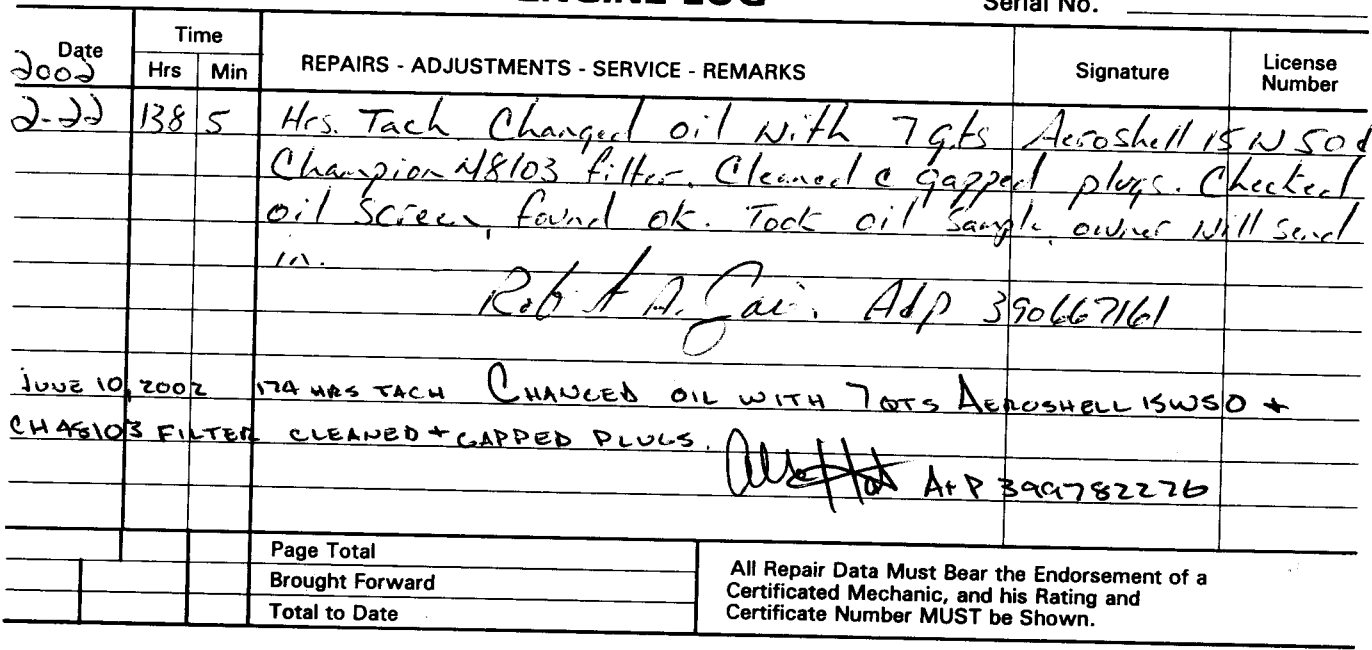 ENGINE LOG
Serial No.
Date
2002
Time
Hrs Min
REPAIRS - ADJUSTMENTS - SERVICE - REMARKS
Signature
License
Number
2-22 138 5 Hrs. Tach Changed oil with 7 qts Aeroshell 15W50 &
Champion 48103 filter. Cleaned & gapped plugs. Checked
oil screen, found ok. Took oil sample, owner will send
in.
A. A&P 390667161
JUNE 10, 2002 174 HRS TACH CHANGED OIL WITH 7 QTS AEROSHELL 15W50 +
CH48103 FILTER CLEANED + GAPPED PLUGS.
A+P 399782276
Page Total
Brought Forward
Total to Date
All Repair Data Must Bear the Endorsement of a
Certificated Mechanic, and his Rating and
Certificate Number MUST be Shown.